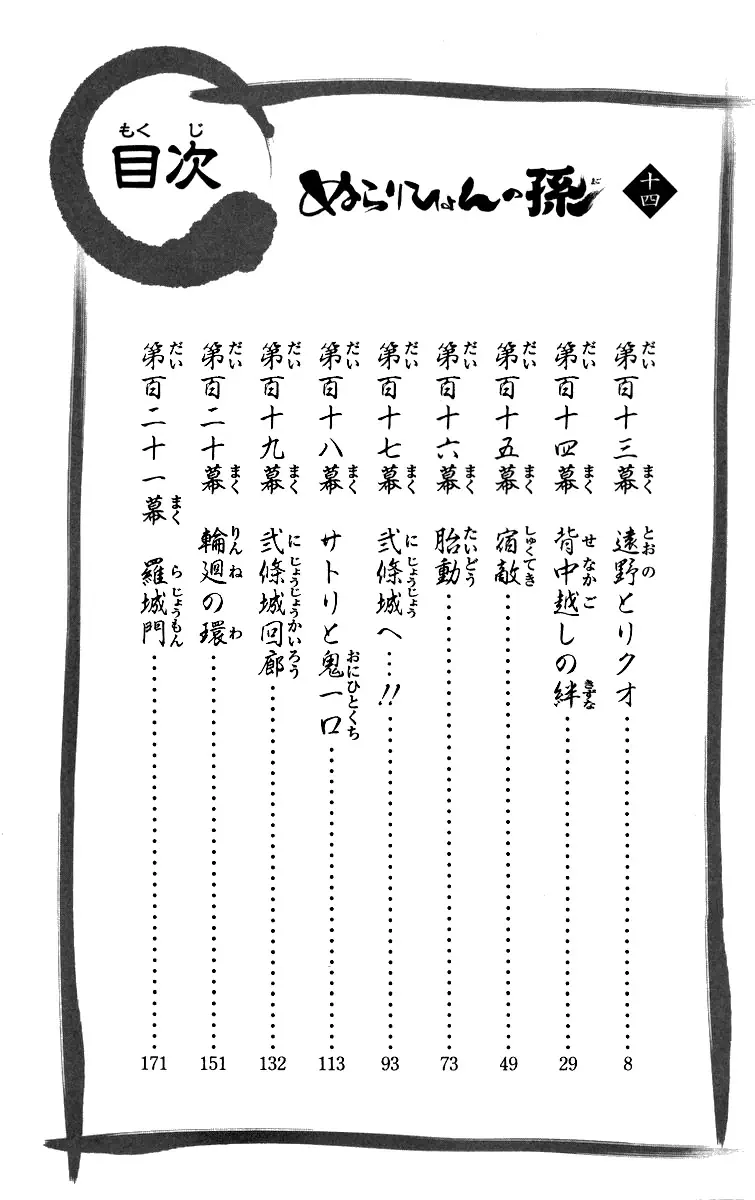 目次
ぬらりひょんの孫 十四
第百十三幕 遠野とリクオ 8
第百十四幕 背中越しの絆 29
第百十五幕 宿敵 49
第百十六幕 胎動 73
第百十七幕 弐條城へ…!! 93
第百十八幕 サトリと鬼一口 113
第百十九幕 弐條城回廊 132
第百二十幕 輪廻の環 151
第百二十一幕 羅城門 171